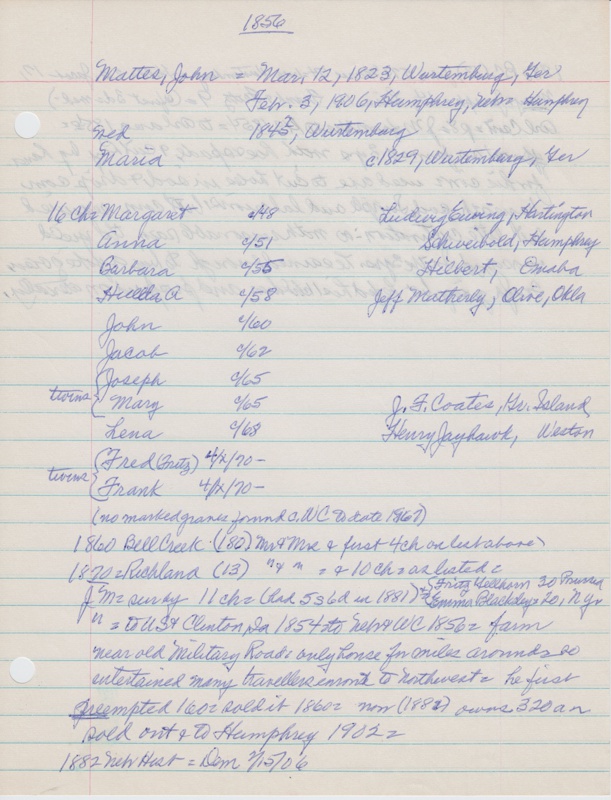 1856
Mattes, John = Mar, 12, 1823, Wurtemburg, Ger
Feb. 3, 1906, Humphrey, Nebr Humphrey
Wed 1845, Wurtemburg
Maria c1829, Wurtemburg, Ger
16 Ch = Margaret c/48 Ludwig Ewing, Hartington
Anna c/51 Schweibold, Humphrey
Barbara c/55 Hilbert, Omaha
Hulda A c/58 Jeff Matherly, Olive, Okla
John c/60
Jacob c/62
twins { Joseph c/65
Mary c/65 J. F. Coates, Gr. Island
Lena c/68 Henry Jayhawk, Weston
twins { Fred (Fritz) 4/2/70-
Frank 4/2/70-
(no marked graves found c. WC to date 1967)
1860 Bell Creek (180) Mr & Mrs & first 4 ch on list above
1870 = Richland (13) " & " = & 10 ch = as listed =
J M = surv by 11 ch = (had 5 & 6 d in 1881) = { Fritz Wellharn 30 Prussia
Emma Blackley = 20, N Y
" = to US & Clinton, Ia 1854 to Neb & WC 1856 = farm
near old Military Road = only house for miles around = so
entertained many travellers enroute to northwest = he first
preempted 160 = sold it 1860 = now (1882) owns 320 a =
sold out & to Humphrey 1902 =
1882 Neb Hist = Dem 2/15/06